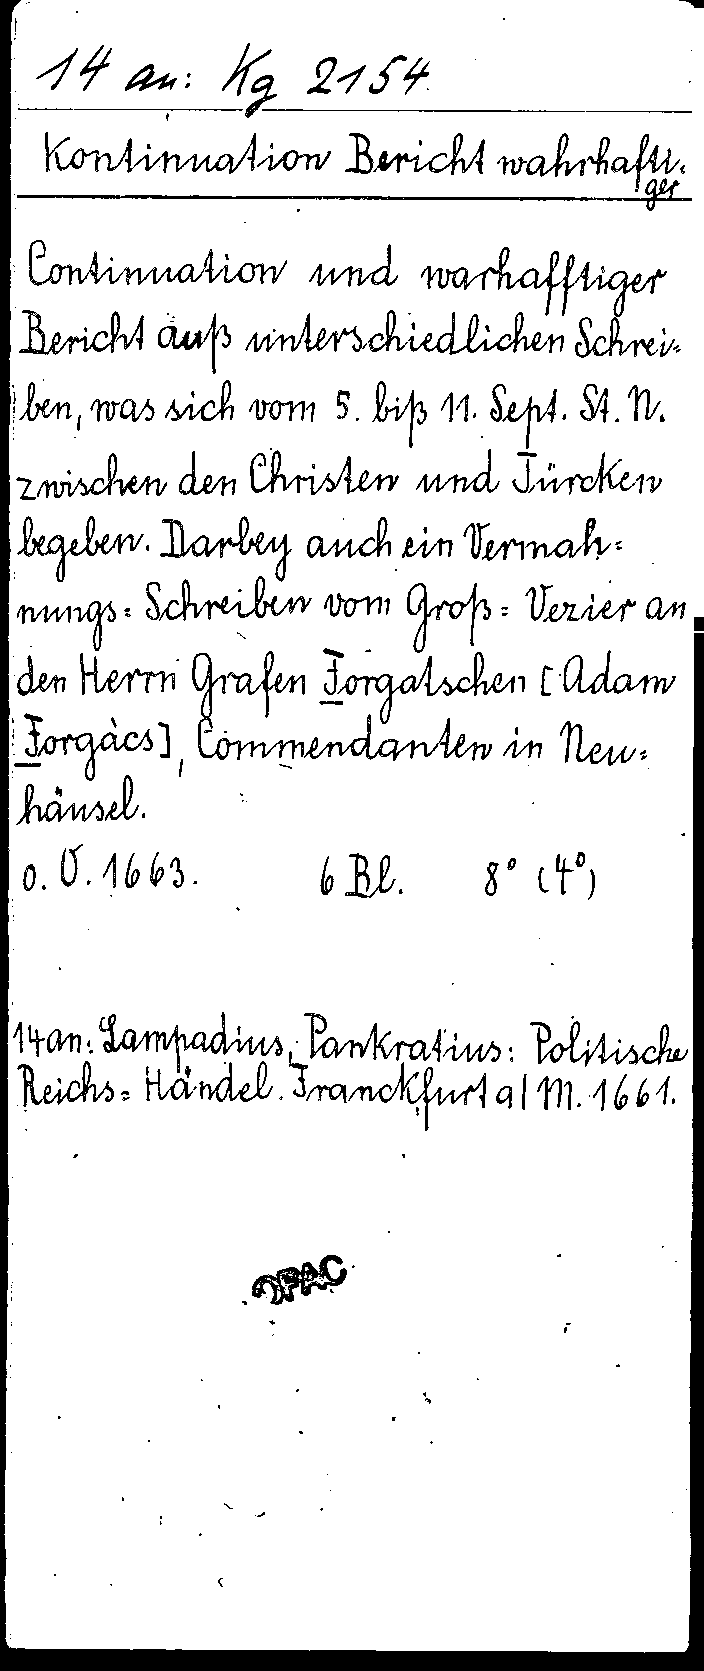 14 an: Kg 2154
Kontinuation Bericht wahrhafti-
ger
Continuation und warhafftiger
Bericht auß unterschiedlichen Schrei-
ben, was sich vom 5. biß 11. Sept. St. N.
zwischen den Christen und Türcken
begeben. Darbey auch ein Vermah-
nungs-Schreiben vom Groß-Vezier an
den Herrn Grafen Forgatschen [Adam
Forgàcs], Commendanten in Neu-
häusel.
o. O. 1663. 6 Bl. 8° (4°)
14 an: Lampadius, Pankratius: Politische
Reichs-Händel. Franckfurt a/M. 1661.
OPAC